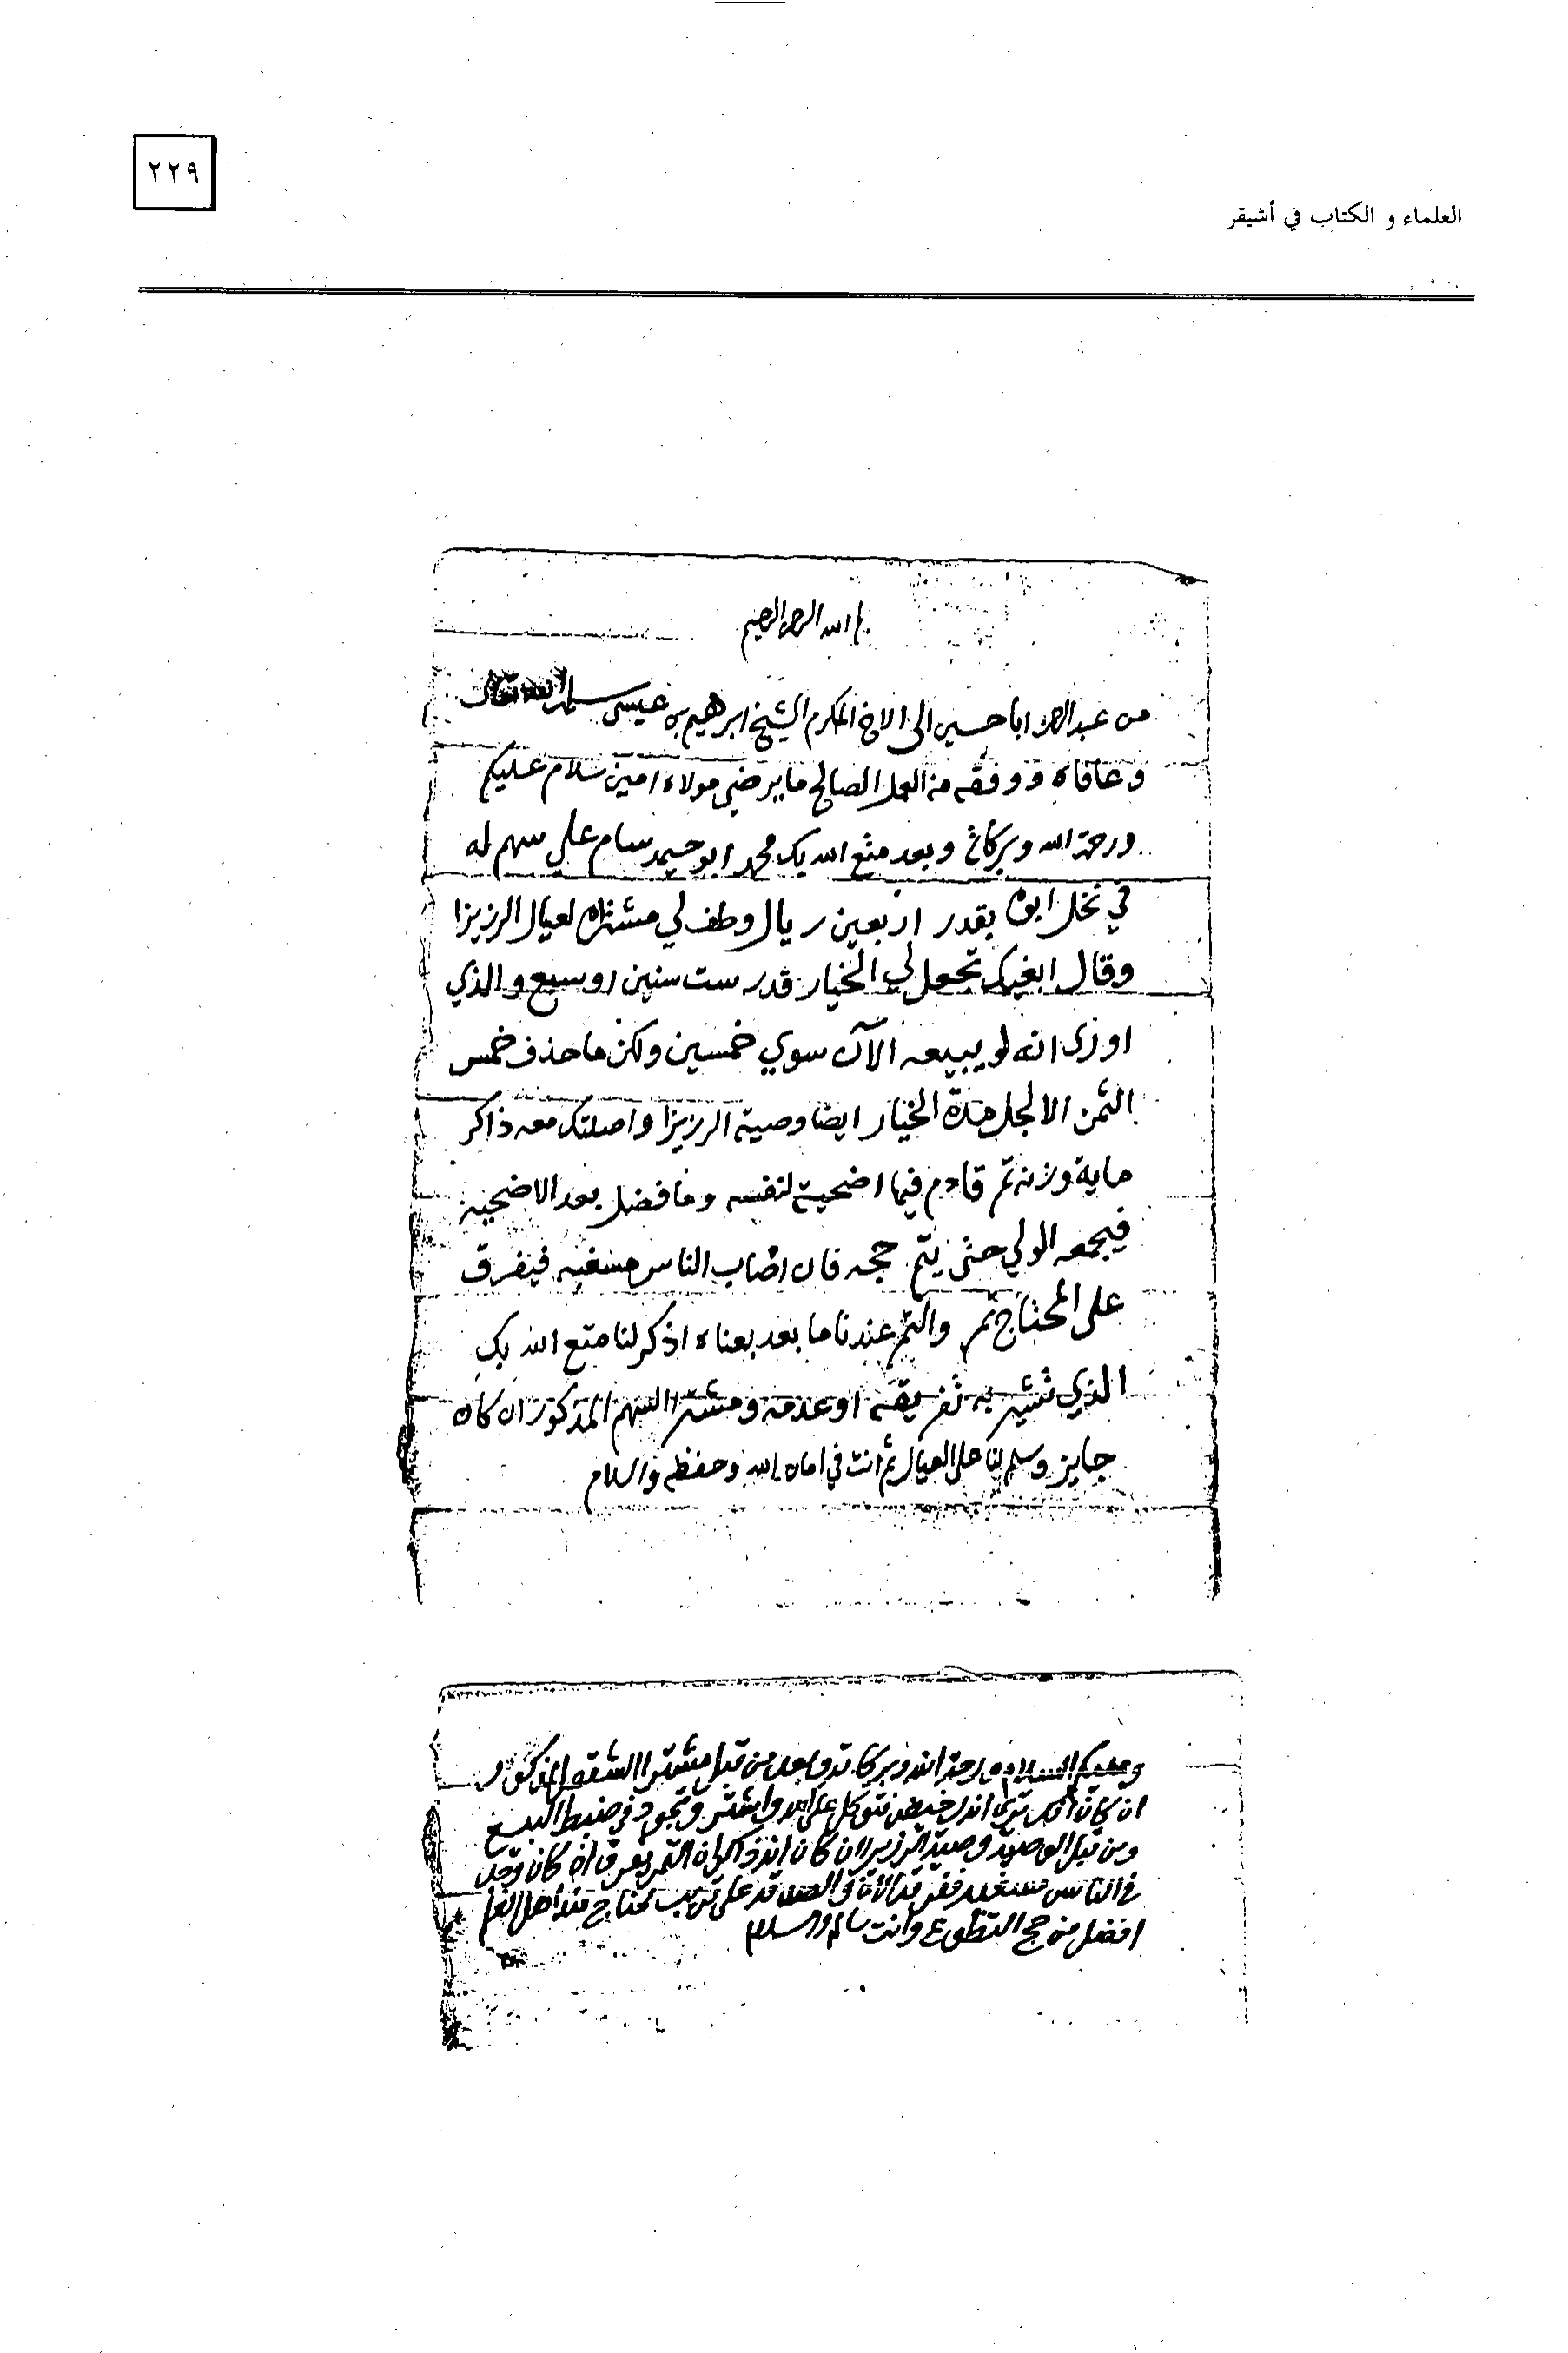 ٢٢٩
العلماء و الكتاب في أشيقر
بسم الله الرحمن الرحيم
من عبد الرحمن اباحسين الى الاخ المكرم الشيخ ابرهيم بن عيسى سلمه الله تعالى
وعافاه ووفقه من العمل الصالح ما يرضي مولاه امين سلام عليكم
ورحمة الله وبركاته وبعد متع الله بك محمد ابوحيمد سام علي سهم له
في نخل ابوه بقدر اربعين ريال وطف لي مشتراه لعيال الرزيزا
وقال ابغيك تجعل لي الخيار قدر ست سنين اوسبع والذي
اوزى انه لو يبيعه الآن سوي خمسين ولكن ما حذف خمس
الثمن الا لاجل مدة الخيار ايضا وصية الرزيزا واصلتك معه ذاكر
ماية وزنة تمر قادم فيها اضحية لنفسه وما فضل بعد الاضحية
فيجمعه الولي حتى يتم حجه فان اصاب الناس مسغبه فيفرق
على المحتاج تمر والتمر عندنا ما بعد بعناه اذكر لنا متع الله بك
الذي تشير به تفريقه او عدمه ومشترا السهم المذكور ان كان
جايز وسلم لنا على العيال ثم انت في امان الله وحفظه والسلام
وعليكم السلام ورحمة الله وبركاته وبعد من قبل مشترا الشقه المذكور
ان كان انك ترى اندك خيض فتوكل على الله واشتر وتجود في ضبط البيع
ومن قبل الوصية وصية الرزيزا ان كان انه ذاكر ان التمر يفرق اذا كان وقد
في الناس مسغبه ففرقه الان والصدقه على قريب محتاج عند اهل العلم
افضل من حج التطوع وانت سالم والسلام